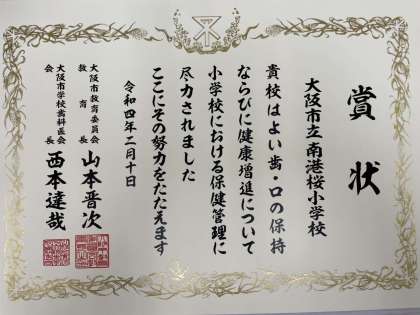 賞状
大阪市立南港桜小学校
貴校はよい歯・口の保持
ならびに健康増進について
小学校における保健管理に
尽力されました
ここにその努力をたたえます
令和四年二月十日
大阪市教育委員会
教育長
山本晋次
大阪市学校歯科医会
会長
西本達哉